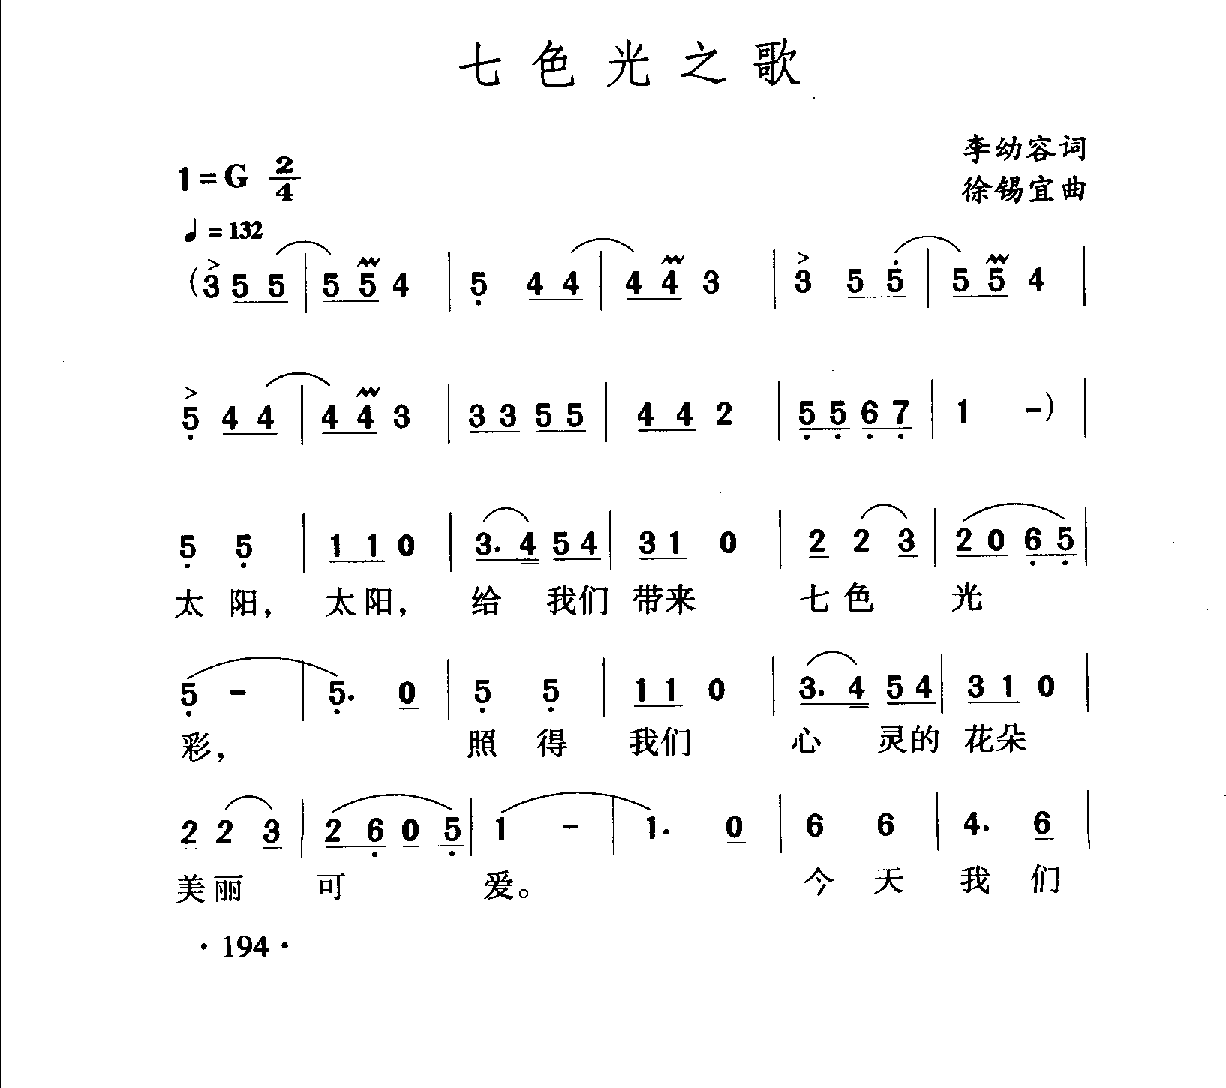 七色光之歌
李幼容词
1=G 2/4
徐锡宜曲
♩=132
(3 5 5 | 5 5 4 | 5 4 4 | 4 4 3 | 3 5 5 | 5 5 4 |
5 4 4 | 4 4 3 | 3 3 5 5 | 4 4 2 | 5 5 6 7 | 1 -) |
5 5 | 1 1 0 | 3. 4 5 4 | 3 1 0 | 2 2 3 | 2 0 6 5 |
太阳, 太阳, 给 我们 带来 七色 光
5 - | 5. 0 | 5 5 | 1 1 0 | 3. 4 5 4 | 3 1 0 |
彩, 照得 我们 心 灵的 花朵
2 2 3 | 2 6 0 5 | 1 - | 1. 0 | 6 6 | 4. 6 |
美丽 可 爱。 今天 我们
·194·